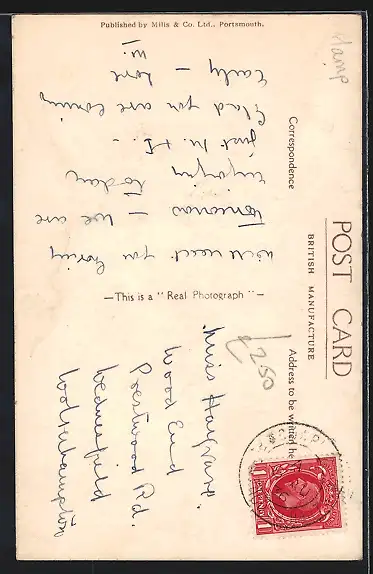 Published by Mills & Co. Ltd., Portsmouth.
POST CARD
BRITISH MANUFACTURE
Correspondence
Address to be written he
—This is a "Real Photograph"—
stamp
£2.50
will meet you
Tomorrow — we are
enjoying today
just
Glad you are coming
Early — Love
W.
Miss
Wood End
Prestwood Rd.
Wednesfield
Wolverhampton